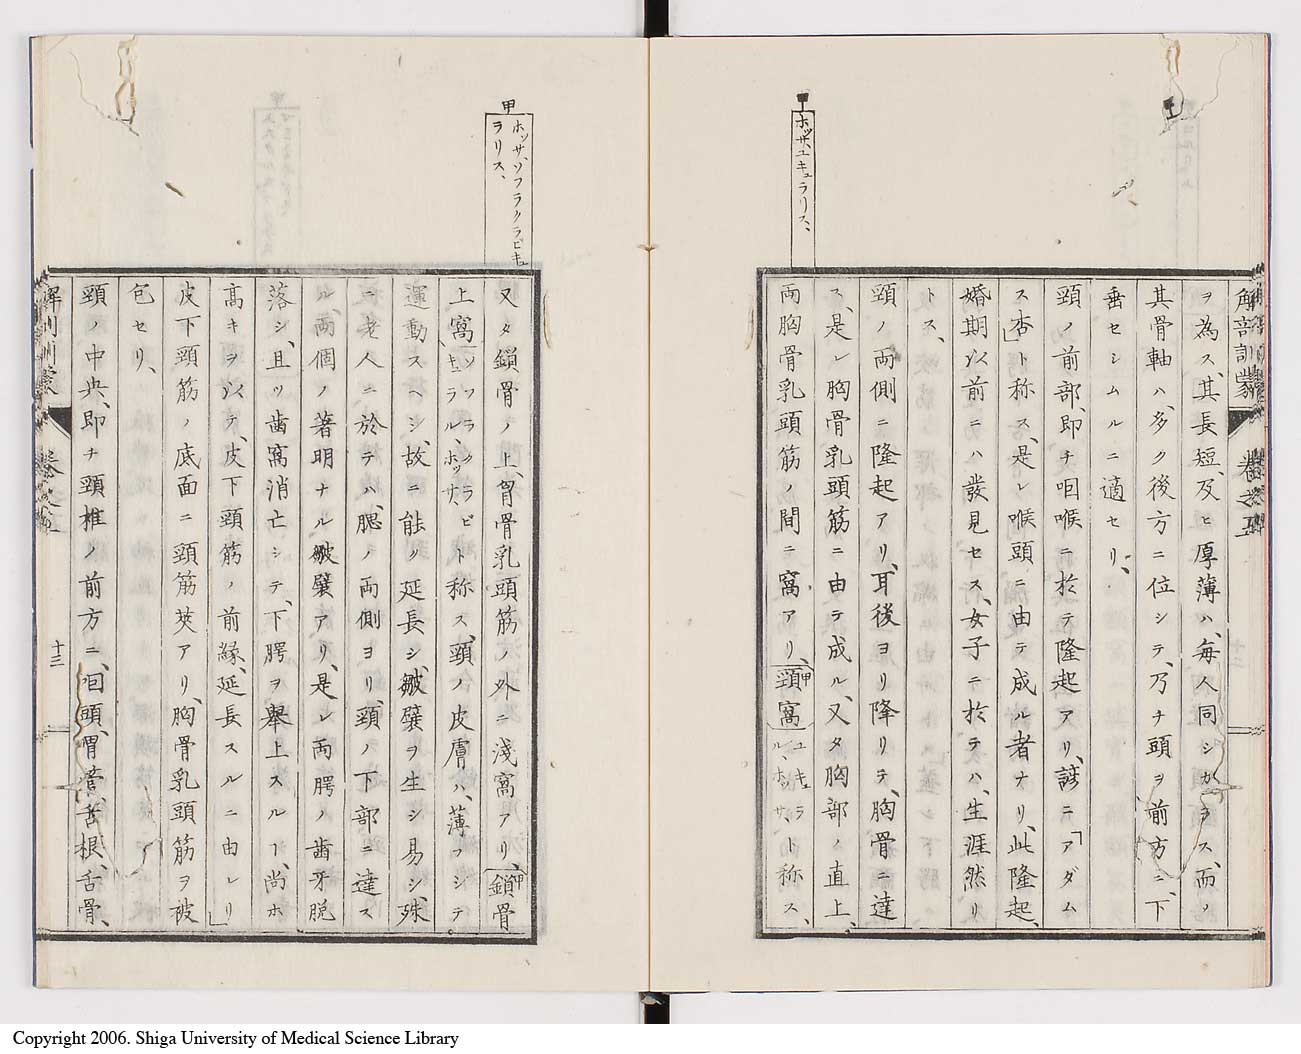 解剖訓蒙 巻之五
ヲ為ス、其長短、及ヒ厚薄ハ、毎人同シカラス、而ノ
其骨軸ハ、多ク後方ニ位シテ、乃ナ頭ヲ前方ニ、下
垂セシムルニ適セリ、
頸ノ前部、即チ咽喉ニ於テ隆起アリ、諺ニ「アダム
ス杏」ト称ス、是レ喉頭ニ由テ成ル者ナリ、此隆起、
婚期以前ニハ發見セス、女子ニ於テハ、生涯然リ
トス、
頸ノ両側ニ隆起アリ、耳後ヨリ降リテ、胸骨ニ達
ス、是レ胸骨乳頭筋ニ由テ成ル、又タ胸部ノ直上、
両胸骨乳頭筋ノ間ニ窩アリ、甲頸窩ユキュラルホッサト称ス、
甲
ホッサ、ユキュラリス、
甲
ホッサ、ソフラクラビキュ
ラリス、
又タ鎖骨ノ上、胷骨乳頭筋ノ外ニ淺窩アリ、甲鎖骨
上窩ソフラクラビキュラル、ホッサ、ト称ス、頸ノ皮膚ハ、薄フシテ
運動スヘシ、故ニ能ク延長シ、皺襞ヲ生シ易シ、殊
ニ老人ニ於テハ、腮ノ両側ヨリ、頸ノ下部ニ達ス
ル、両個ノ著明ナル皺襞アリ、是レ両腭ノ齒牙脱
落シ、且ツ歯窩消亡シテ、下腭ヲ舉上スルー、尚ホ
高キヲ以テ、皮下頸筋ノ前緣、延長スルニ由レリ」
皮下頸筋ノ底面ニ頸筋莢アリ、胸骨乳頭筋ヲ被
包セリ、
頸ノ中央、即チ頸椎ノ前方ニ、咽頭、胃管、舌根、舌骨、
巻之五
十三
Copyright 2006. Shiga University of Medical Science Library